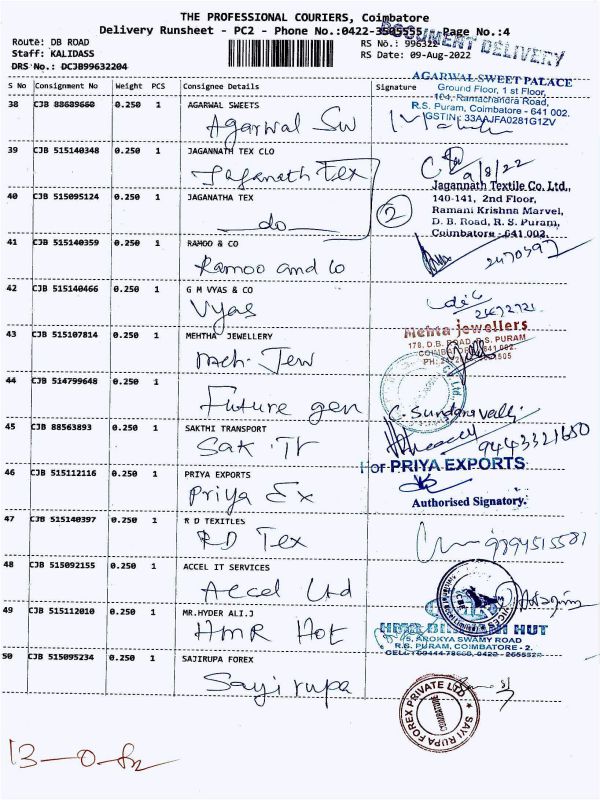 THE PROFESSIONAL COURIERS, Coimbatore
Delivery Runsheet - PC2 - Phone No.:0422-3505555 Page No.:4
DOCUMENT DELIVERY
Route: DB ROAD
RS No.: 996322
Staff: KALIDASS
RS Date: 09-Aug-2022
DRS No.: DCJB99632204
S No Consignment No Weight PCS Consignee Details Signature
AGARWAL SWEET PALACE
Ground Floor, 1 st Floor,
104, Ramachandra Road,
R.S. Puram, Coimbatore - 641 002.
GSTIN: 33AAJFA0281G1ZV
38 CJB 88689660 0.250 1 AGARWAL SWEETS
Agarwal Sw
39 CJB 515140348 0.250 1 JAGANNATH TEX CLO
Jaganath Tex
9/8/22
Jagannath Textile Co. Ltd.,
140-141, 2nd Floor,
Ramani Krishna Marvel,
D. B. Road, R. S. Puram,
Coimbatore - 641 002.
40 CJB 515095124 0.250 1 JAGANATHA TEX
do
2
41 CJB 515140359 0.250 1 RAMOO & CO
Ramoo and co
2470397
42 CJB 515140466 0.250 1 G M VYAS & CO
Vyas
43 CJB 515107814 0.250 1 MEHTHA JEWELLERY
Meh. Jew
Mehta jewellers
178, D.B. ROAD, R.S. PURAM
COIMBATORE - 641 002.
44 CJB 514799648 0.250 1
Future gen
C. Sundaravalli
45 CJB 88563893 0.250 1 SAKTHI TRANSPORT
Sak Tr
9443321650
46 CJB 515112116 0.250 1 PRIYA EXPORTS
Priya Ex
For PRIYA EXPORTS
Authorised Signatory.
47 CJB 515140397 0.250 1 R D TEXITLES
RD Tex
9894515581
48 CJB 515092155 0.250 1 ACCEL IT SERVICES
Accel Ltd
49 CJB 515112010 0.250 1 MR.HYDER ALI.J
HMR Hot
HUT
AROKYA SWAMY ROAD
R.S. PURAM, COIMBATORE - 2.
50 CJB 515095234 0.250 1 SAJIRUPA FOREX
Sayi rupa
SAYI RUPA FOREX PRIVATE LTD
COIMBATORE